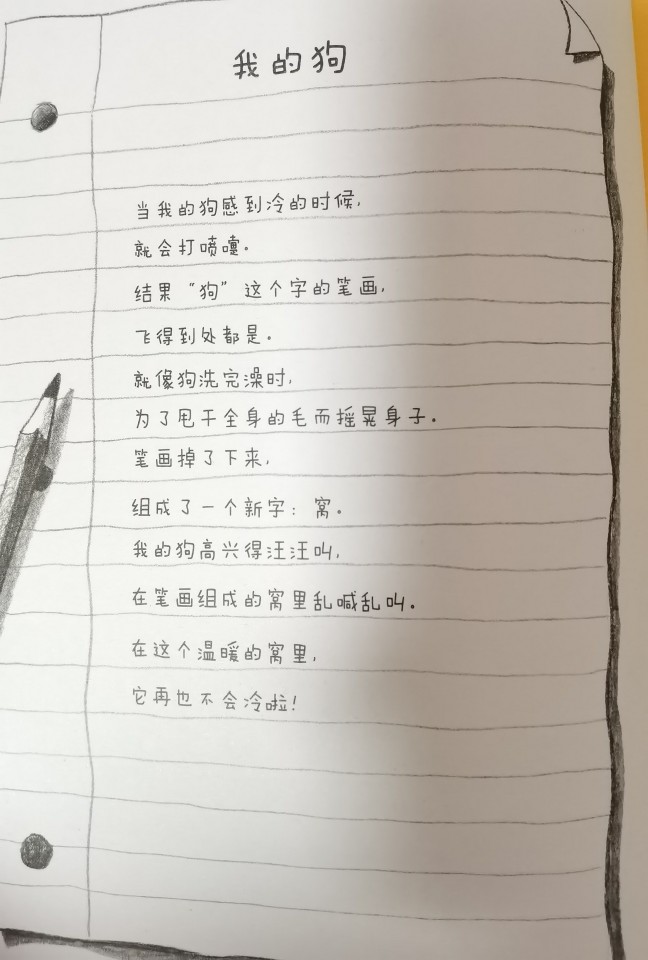 我的狗
当我的狗感到冷的时候,
就会打喷嚏.
结果“狗”这个字的笔画,
飞得到处都是.
就像狗洗完澡时,
为了甩干全身的毛而摇晃身子.
笔画掉了下来,
组成了一个新字: 窝.
我的狗高兴得汪汪叫,
在笔画组成的窝里乱喊乱叫.
在这个温暖的窝里,
它再也不会冷啦!